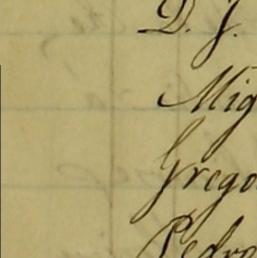 D. J.
Mig
Grego
Pedro